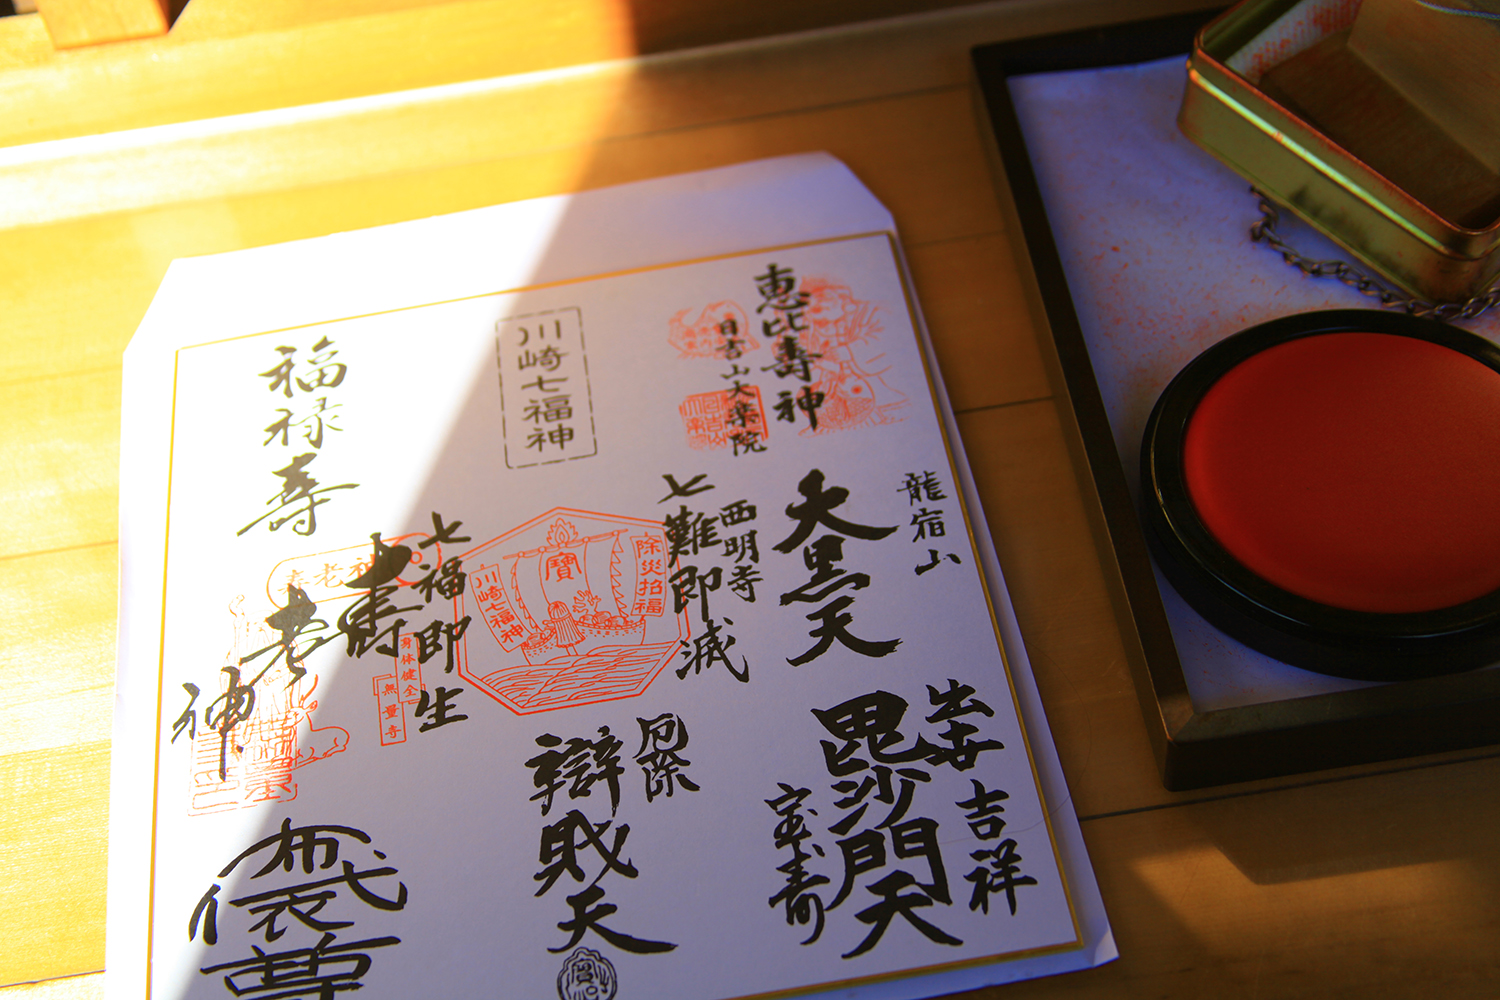 恵比壽神
日吉山大楽院
川崎七福神
福禄寿
龍宿山
大黒天
西明寺
七難即滅
除災招福
寶
川崎七福神
七福即生
寿老神
寿老神
身体健全
無量寺
吉祥
毘沙門天
宝寿
厄除
辯財天
布袋尊